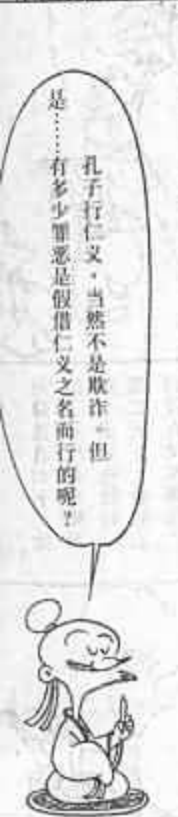 孔子行仁义，当然不是欺诈。但
是……有多少罪恶是假借仁义之名而行的呢？